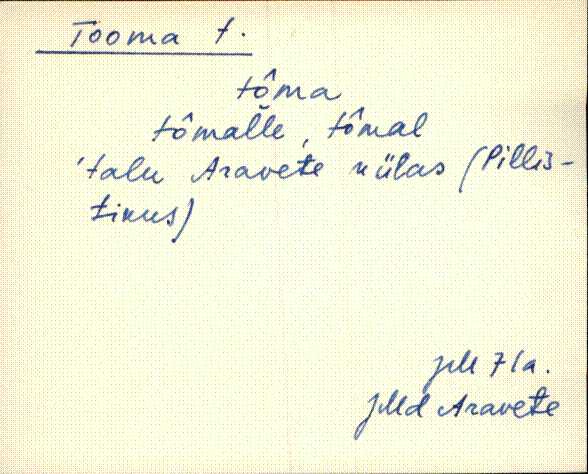 Tooma t.
tôma
tômalle, tômal
'talu Aravete külas (Pillis-
tinus)
JMd Aravete